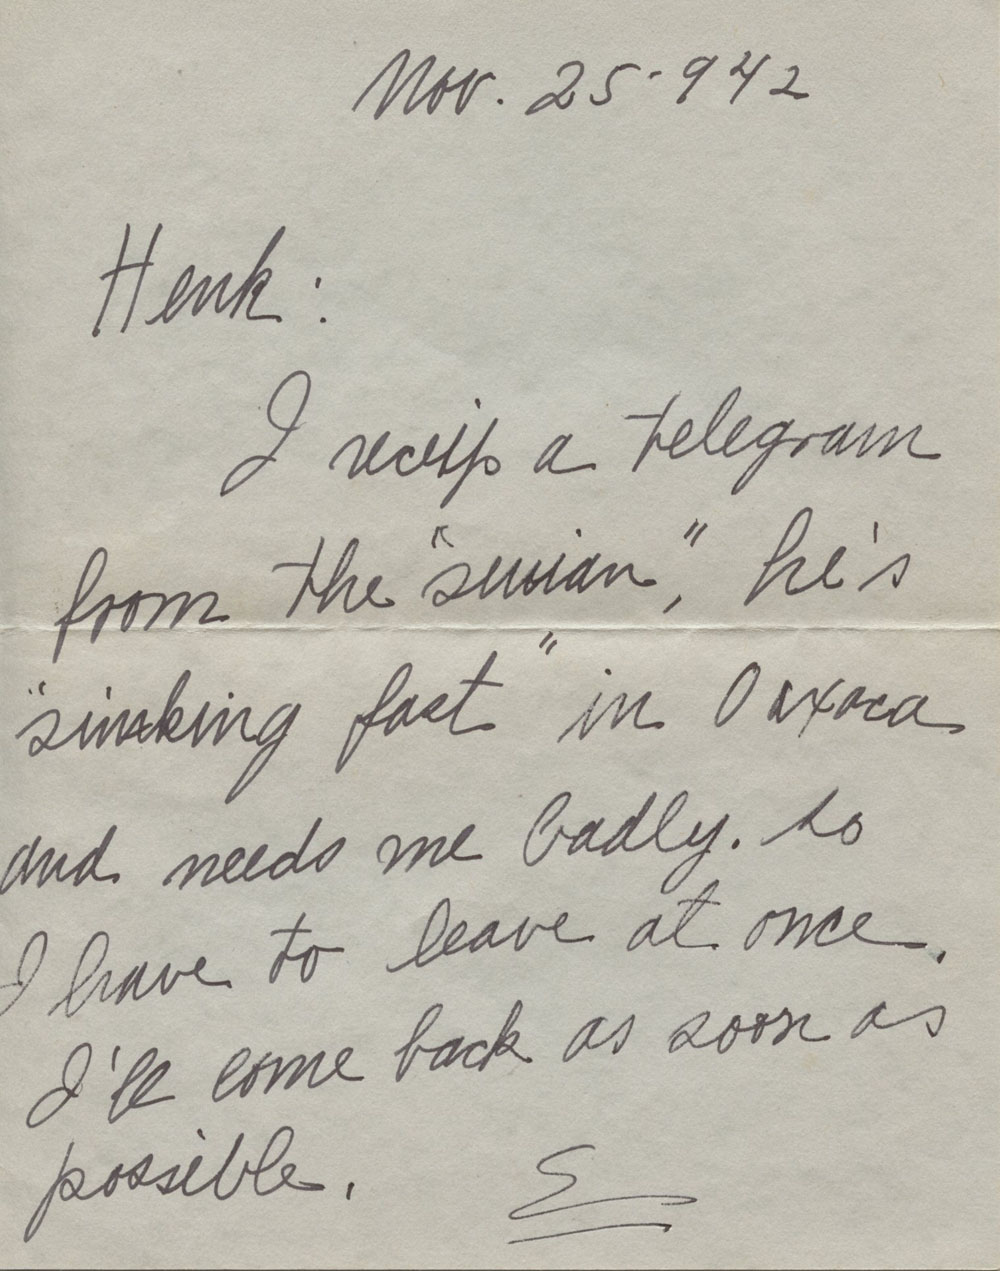 Nov. 25-942
Henk:
I a telegram
from the " ," he's
"sinking fast" in Oaxaca
and needs me badly. so
I have to leave at once.
I'll come back as soon as
possible. E